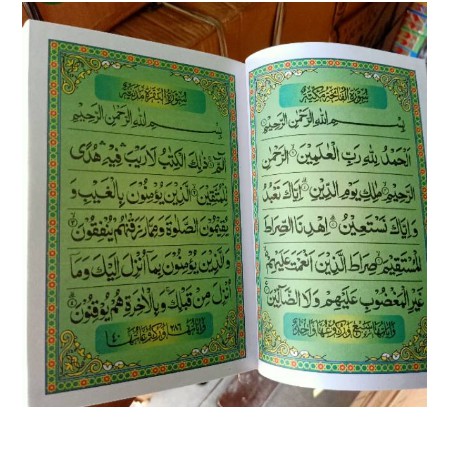 سُورَةُ الْفَاتِحَةِ مَكِّيَّةٌ
بِسْمِ اللهِ الرَّحْمٰنِ الرَّحِيْمِ
اَلْحَمْدُ لِلّٰهِ رَبِّ الْعٰلَمِيْنَ الرَّحْمٰنِ
الرَّحِيْمِ مٰلِكِ يَوْمِ الدِّيْنِ اِيَّاكَ نَعْبُدُ
وَاِيَّاكَ نَسْتَعِيْنُ اِهْدِنَا الصِّرَاطَ
الْمُسْتَقِيْمَ صِرَاطَ الَّذِيْنَ اَنْعَمْتَ عَلَيْهِمْ
غَيْرِ الْمَغْضُوْبِ عَلَيْهِمْ وَلَا الضَّآلِّيْنَ
سُورَةُ الْبَقَرَةِ مَدَنِيَّةٌ
بِسْمِ اللهِ الرَّحْمٰنِ الرَّحِيْمِ
الٓمّٓ ذٰلِكَ الْكِتٰبُ لَا رَيْبَ فِيْهِ هُدًى
لِّلْمُتَّقِيْنَ الَّذِيْنَ يُؤْمِنُوْنَ بِالْغَيْبِ وَ
يُقِيْمُوْنَ الصَّلٰوةَ وَمِمَّا رَزَقْنٰهُمْ يُنْفِقُوْنَ
وَالَّذِيْنَ يُؤْمِنُوْنَ بِمَآ اُنْزِلَ اِلَيْكَ وَمَآ
اُنْزِلَ مِنْ قَبْلِكَ وَبِالْاٰخِرَةِ هُمْ يُوْقِنُوْنَ